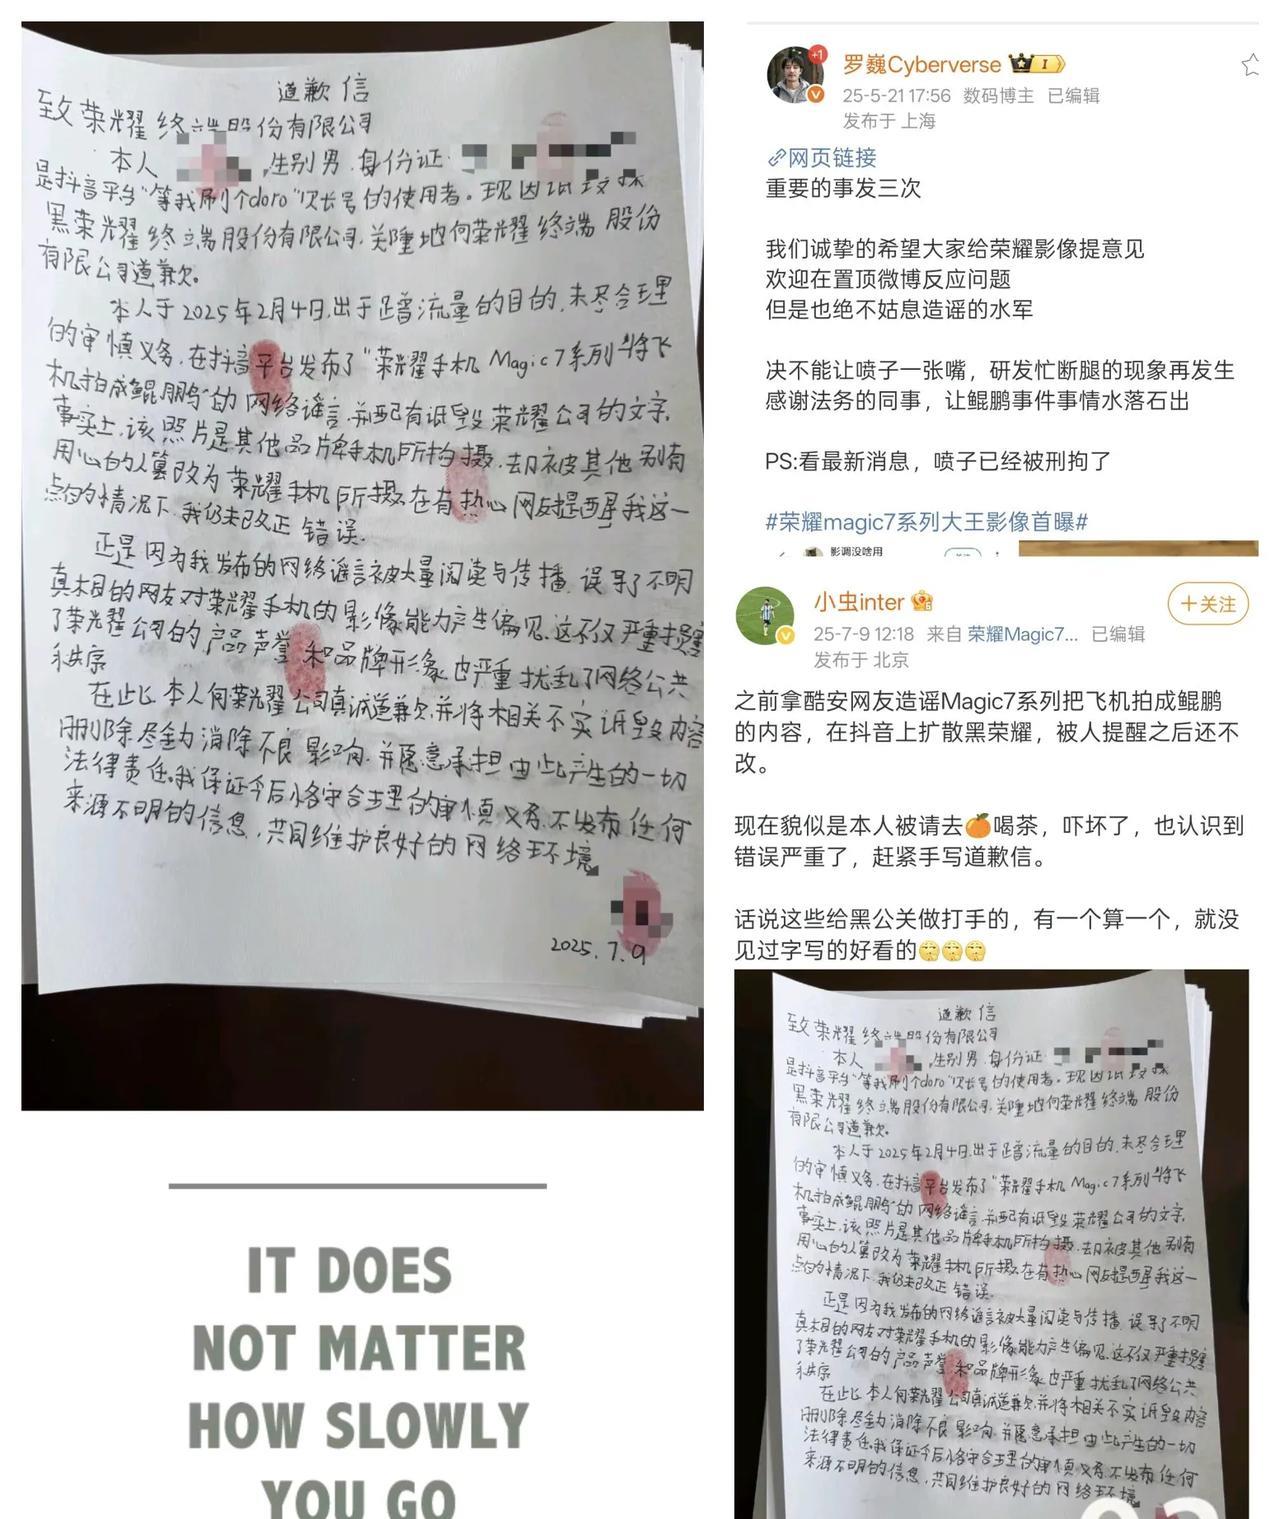 道歉信
致荣耀终端股份有限公司
本人 ,性别男,身份证
是抖音平台"等我刷个doro"账号的使用者。现因
黑荣耀终端股份有限公司,关隆地向荣耀终端股份
有限公司道歉。
本人于2025年2月4日,出于蹭流量的目的,未尽合理
的审慎义务,在抖音平台发布了"荣耀手机Magic7系列"将飞
机拍成鲲鹏"的网络谣言,并配有诋毁荣耀公司的文字。
事实上,该照片是其他品牌手机所拍摄,却被其他别有
用心的人篡改为荣耀手机所摄。在有热心网友提醒我这一
点的情况下,我仍未改正错误。
正是因为我发布的网络谣言被大量阅读与传播,误导了不明
真相的网友对荣耀手机的影像能力产生偏见,这不仅严重损害
了荣耀公司的产品声誉和品牌形象,也严重扰乱了网络公共
秩序
在此,本人向荣耀公司真诚道歉,并将相关不实诋毁内容
删除,尽全力消除不良影响,并愿意承担由此产生的一切
法律责任。我保证今后恪守合理的审慎义务,不发布任何
来源不明的信息,共同维护良好的网络环境。
2025.7.9
IT DOES
NOT MATTER
HOW SLOWLY
YOU GO
罗巍Cyberverse
25-5-21 17:56 数码博主 已编辑
发布于 上海
网页链接
重要的事发三次
我们诚挚的希望大家给荣耀影像提意见
欢迎在置顶微博反应问题
但是也绝不姑息造谣的水军
决不能让喷子一张嘴，研发忙断腿的现象再发生
感谢法务的同事，让鲲鹏事件事情水落石出
PS:看最新消息，喷子已经被刑拘了
#荣耀magic7系列大王影像首曝#
影调没啥用
小虫inter
+关注
25-7-9 12:18 来自 荣耀Magic7... 已编辑
发布于 北京
之前拿酷安网友造谣Magic7系列把飞机拍成鲲鹏
的内容，在抖音上扩散黑荣耀，被人提醒之后还不
改。
现在貌似是本人被请去🍊喝茶，吓坏了，也认识到
错误严重了，赶紧手写道歉信。
话说这些给黑公关做打手的，有一个算一个，就没
见过字写的好看的
道歉信
致荣耀终端股份有限公司
本人 ,性别男,身份证
是抖音平台"等我刷个doro"账号的使用者。现因
黑荣耀终端股份有限公司,关隆地向荣耀终端股份
有限公司道歉。
本人于2025年2月4日,出于蹭流量的目的,未尽合理
的审慎义务,在抖音平台发布了"荣耀手机Magic7系列"将飞
机拍成鲲鹏"的网络谣言,并配有诋毁荣耀公司的文字。
事实上,该照片是其他品牌手机所拍摄,却被其他别有
用心的人篡改为荣耀手机所摄。在有热心网友提醒我这一
点的情况下,我仍未改正错误。
正是因为我发布的网络谣言被大量阅读与传播,误导了不明
真相的网友对荣耀手机的影像能力产生偏见,这不仅严重损害
了荣耀公司的产品声誉和品牌形象,也严重扰乱了网络公共
秩序
在此,本人向荣耀公司真诚道歉,并将相关不实诋毁内容
删除,尽全力消除不良影响,并愿意承担由此产生的一切
法律责任。我保证今后恪守合理的审慎义务,不发布任何
来源不明的信息,共同维护良好的网络环境。